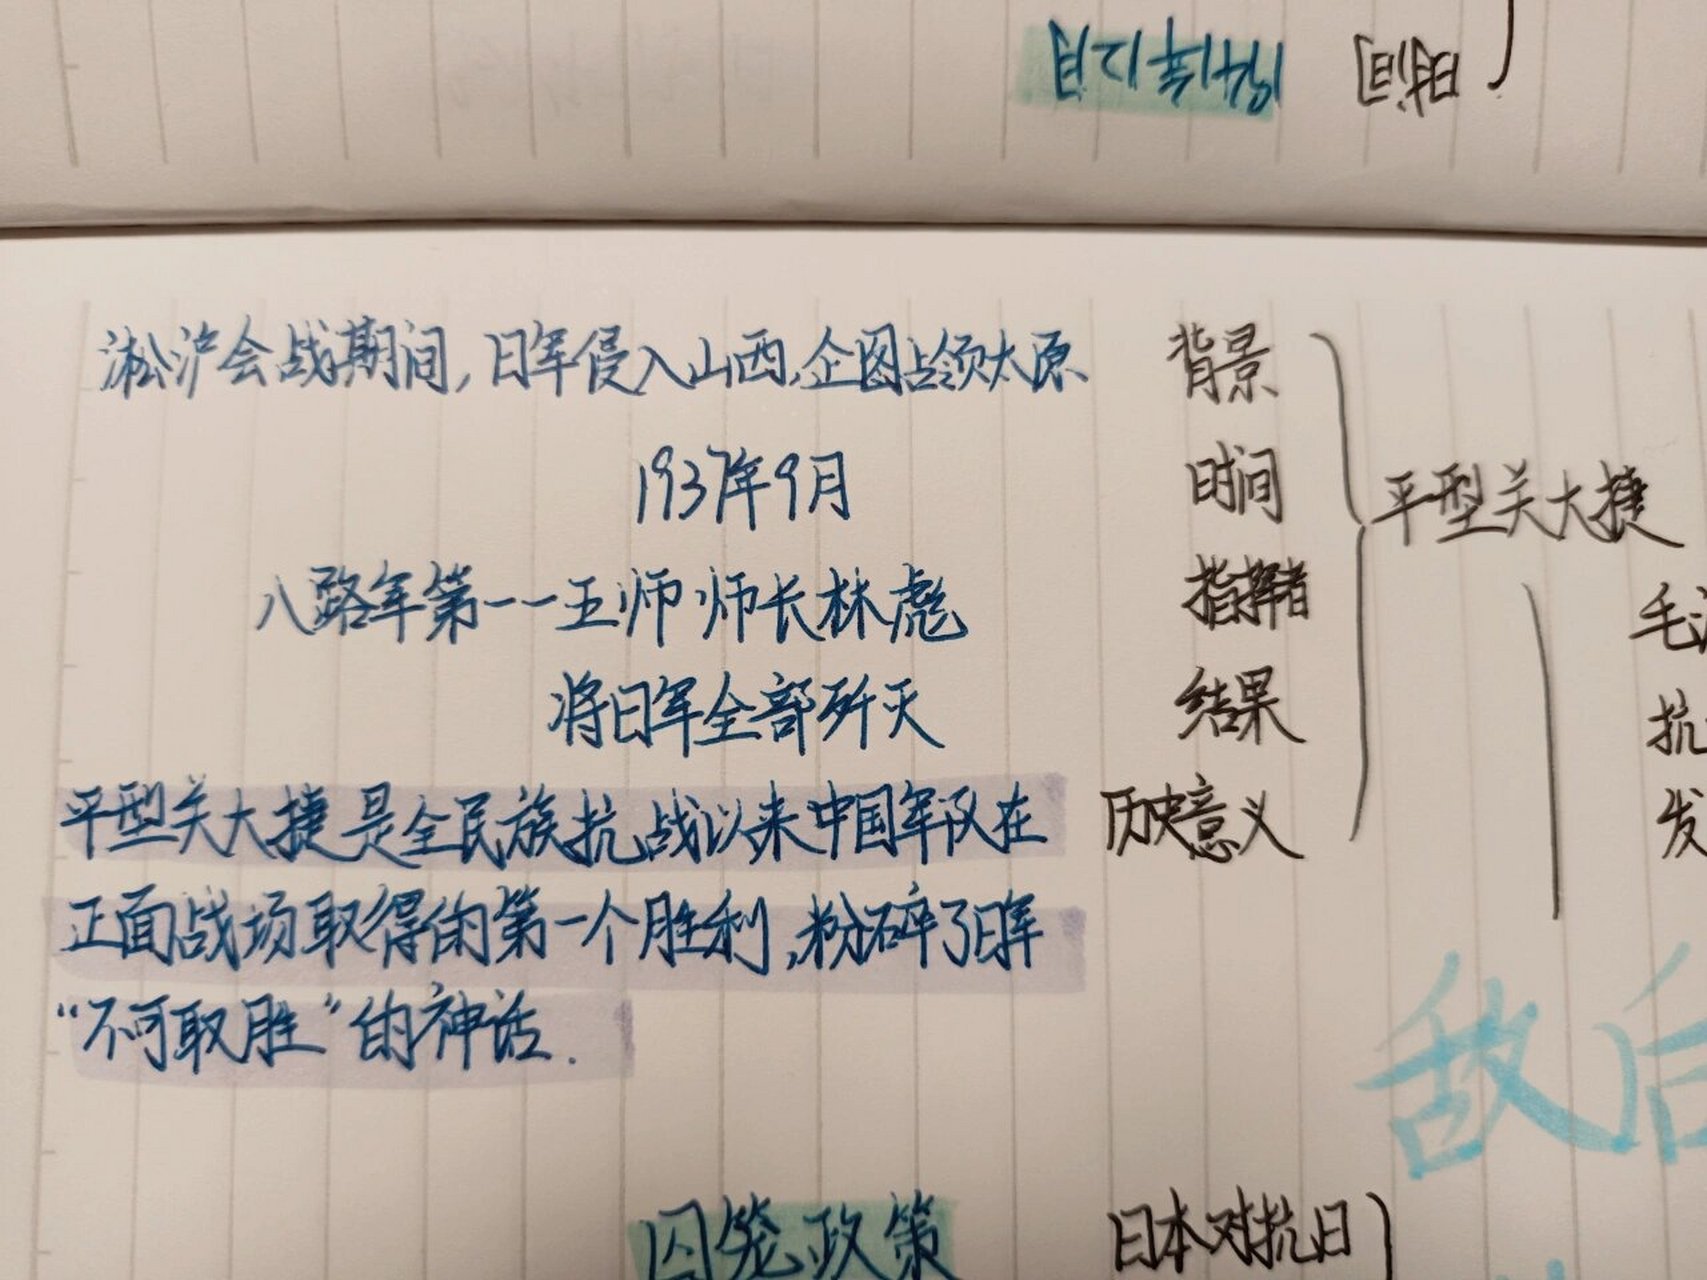 1941年12月 时间
淞沪会战期间,日军侵入山西,企图占领太原 背景
1937年9月 时间
平型关大捷
八路军第一一五师 师长林彪 指挥者
毛
将日军全部歼灭 结果
抗
平型关大捷是全民族抗战以来中国军队在 历史意义
发
正面战场取得的第一个胜利,粉碎了日军
“不可取胜”的神话.
敌后
囚笼政策 日本对抗日